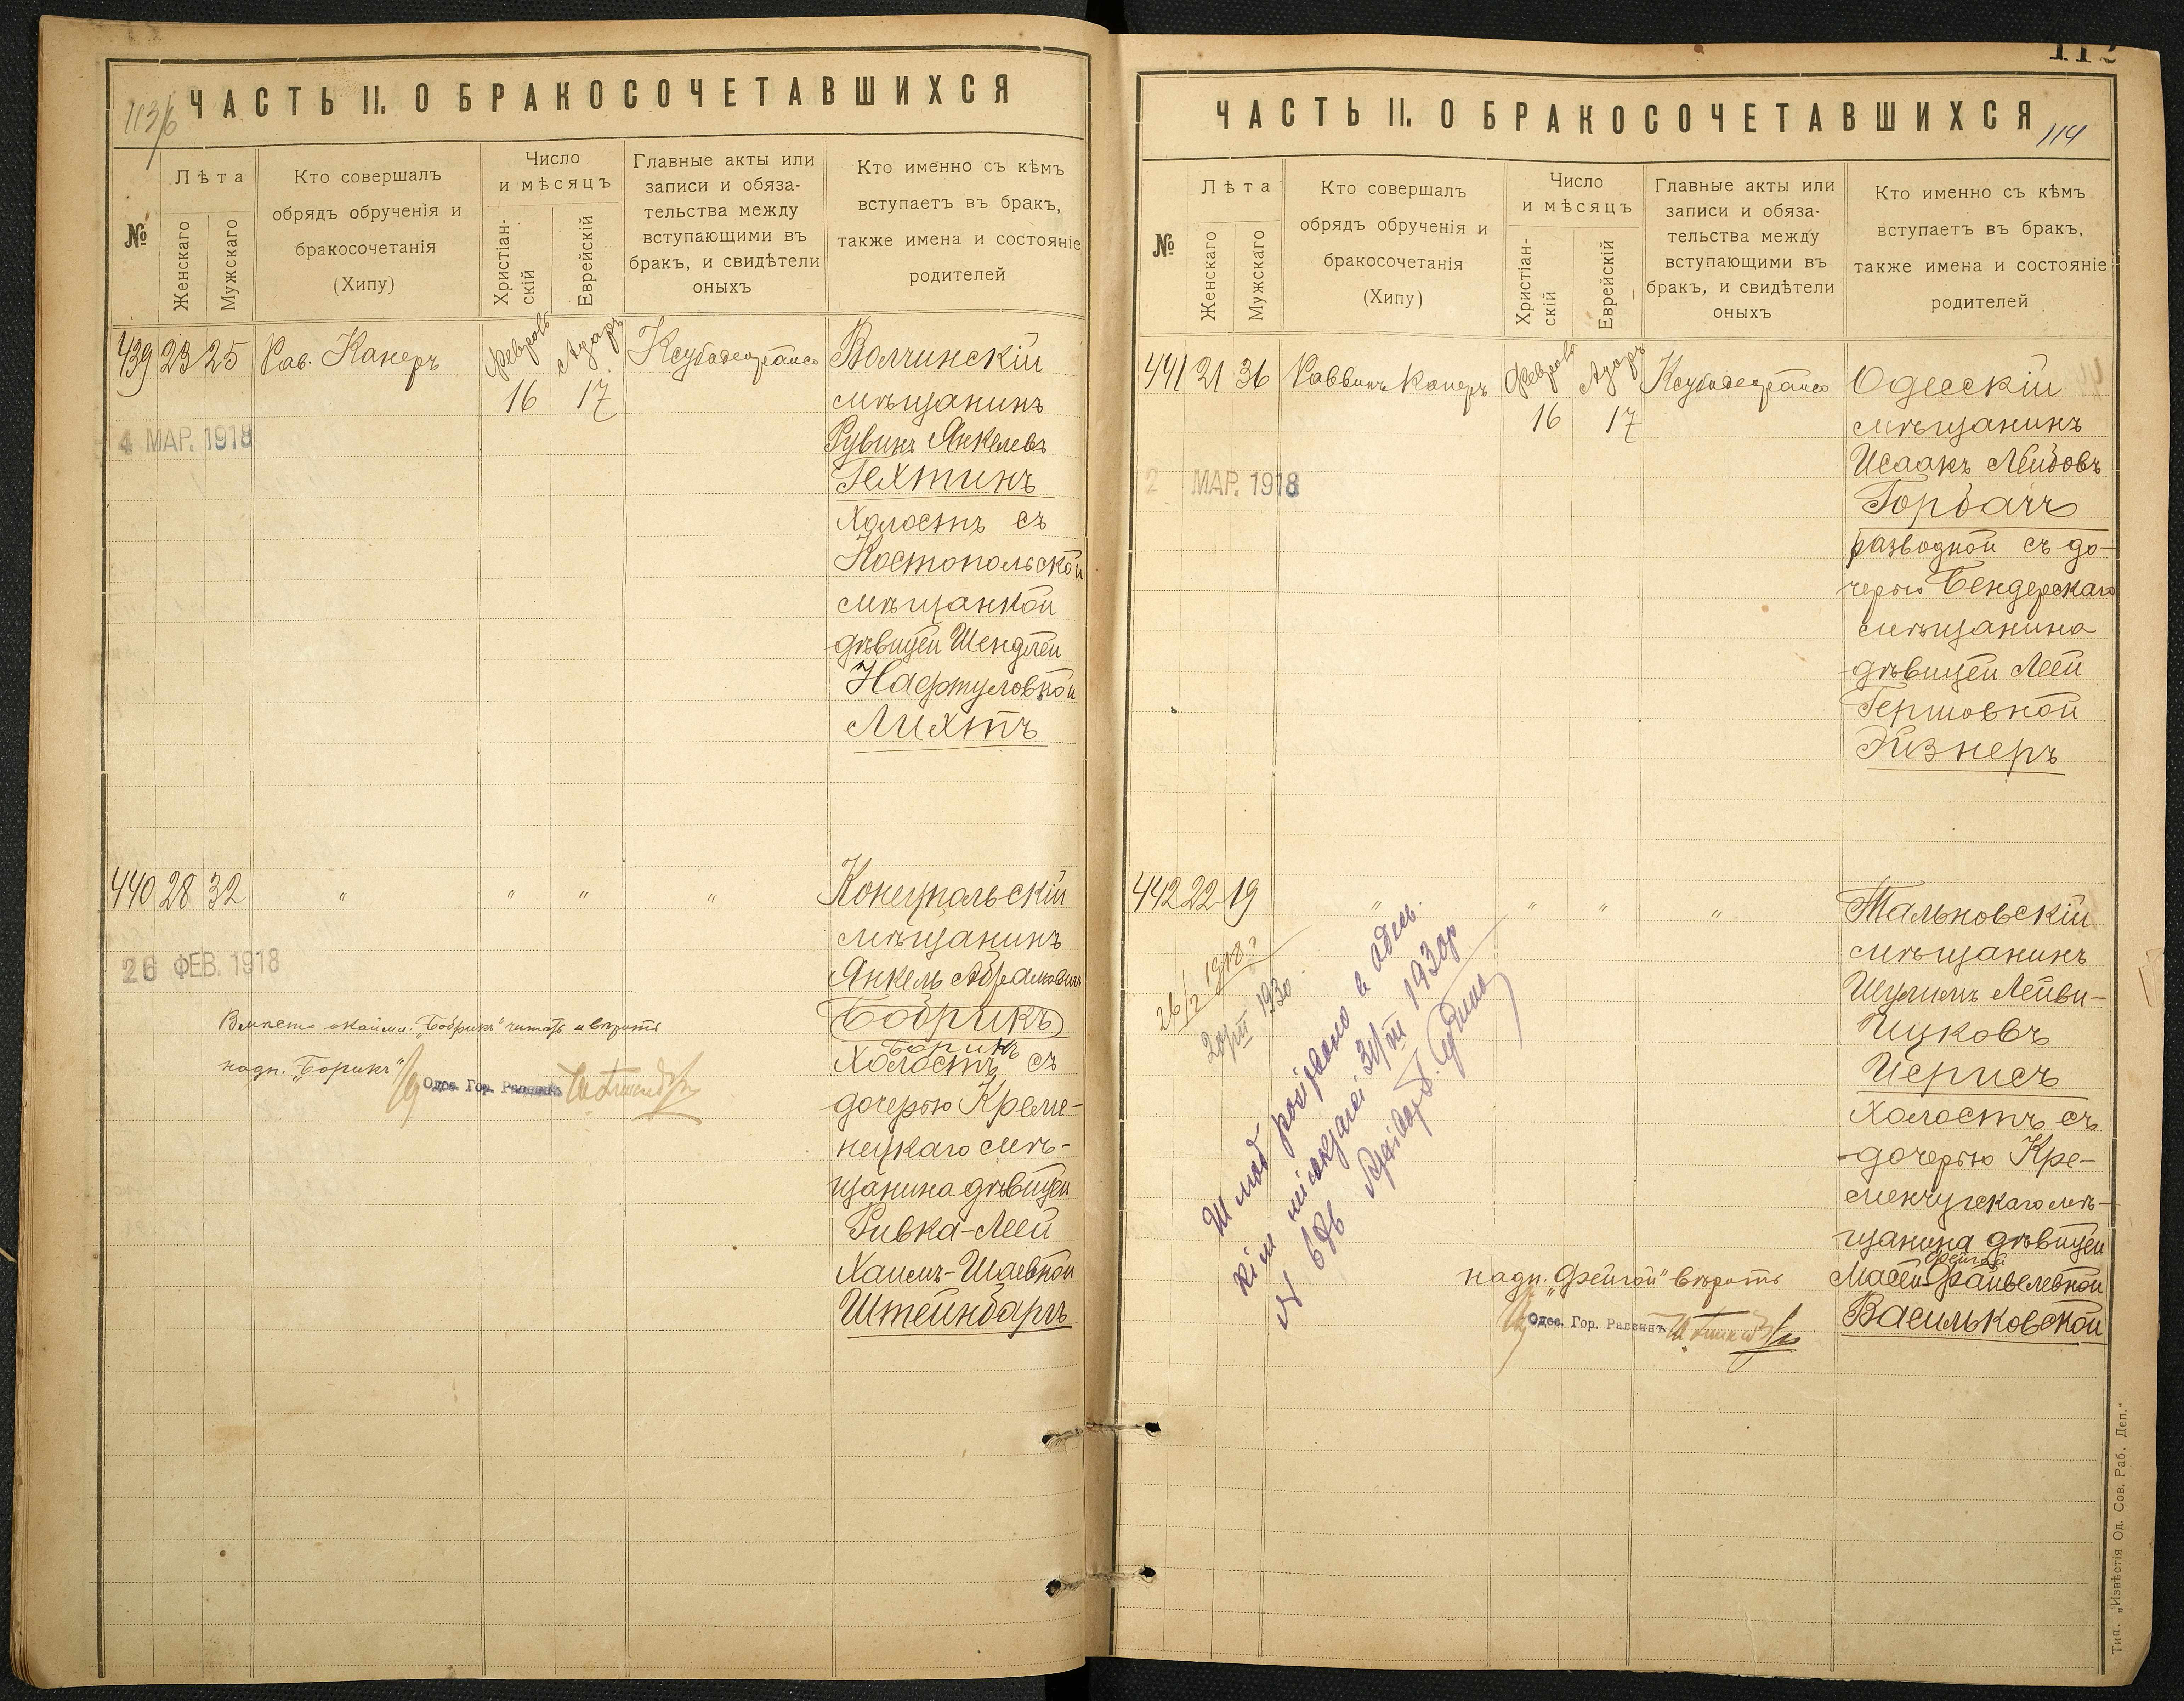 113/6
ЧАСТЬ II. О БРАКОСОЧЕТАВШИХСЯ
№
Лѣта
Женскаго
Мужскаго
Кто совершалъ
обрядъ обрученія и
бракосочетанія
(Хипу)
Число
и мѣсяцъ
Христіан-
скій
Еврейскій
Главные акты или
записи и обяза-
тельства между
вступающими въ
бракъ, и свидѣтели
оныхъ
Кто именно съ кѣмъ
вступаетъ въ бракъ,
также имена и состояніе
родителей
439 23 25 Рав. Канеръ
16 17
Волчинскій
мѣщанинъ
Рувинъ Янкелевъ
Гехтинъ
Холостъ съ
Костопольской
мѣщанкой
дѣвицей Шендлей
Нафтуловной
Лихтъ
4 МАР. 1918
440 28 32 " " " "
Конецпольскій
мѣщанинъ
Янкель Абрамовичъ
Бобрикъ
Борикъ
Холостъ съ
дочерью Креме-
нецкаго мѣ-
щанина дѣвицей
Ривка-Леей
Хаимъ-Шаевной
Штейнбаргъ
26 ФЕВ. 1918
Вмѣсто окайми. „Бобрикъ" читать и вѣрить
надп. „Борикъ"
Одес. Гор. Раввинъ
112
ЧАСТЬ II. О БРАКОСОЧЕТАВШИХСЯ
114
№
Лѣта
Женскаго
Мужскаго
Кто совершалъ
обрядъ обрученія и
бракосочетанія
(Хипу)
Число
и мѣсяцъ
Христіан-
скій
Еврейскій
Главные акты или
записи и обяза-
тельства между
вступающими въ
бракъ, и свидѣтели
оныхъ
Кто именно съ кѣмъ
вступаетъ въ бракъ,
также имена и состояніе
родителей
441 21 36 Раввинъ Канеръ
16 17
Одесскій
мѣщанинъ
Исаакъ Лейбовъ
Горбачъ
разводной съ до-
черью Бендерскаго
мѣщанина
дѣвицей Леей
Гершовной
Эйзнеръ
2 МАР. 1918
442 22 19 " " " "
Тальновскій
мѣщанинъ
Шулимъ Лейви-
Ицковъ
Иерисъ
Холостъ съ
дочерью Кре-
менчугскаго мѣ-
щанина дѣвицей
Фейгой
Масей-Файвелевной
Васильковской
26/2 1918 г.
20/III 1930
Шлюб розірвано в Одесь.
31/III 1930р
надп. „Фейгой" вѣрить
Одес. Гор. Раввинъ
Тип. „Извѣстія Од. Сов. Раб. Деп."